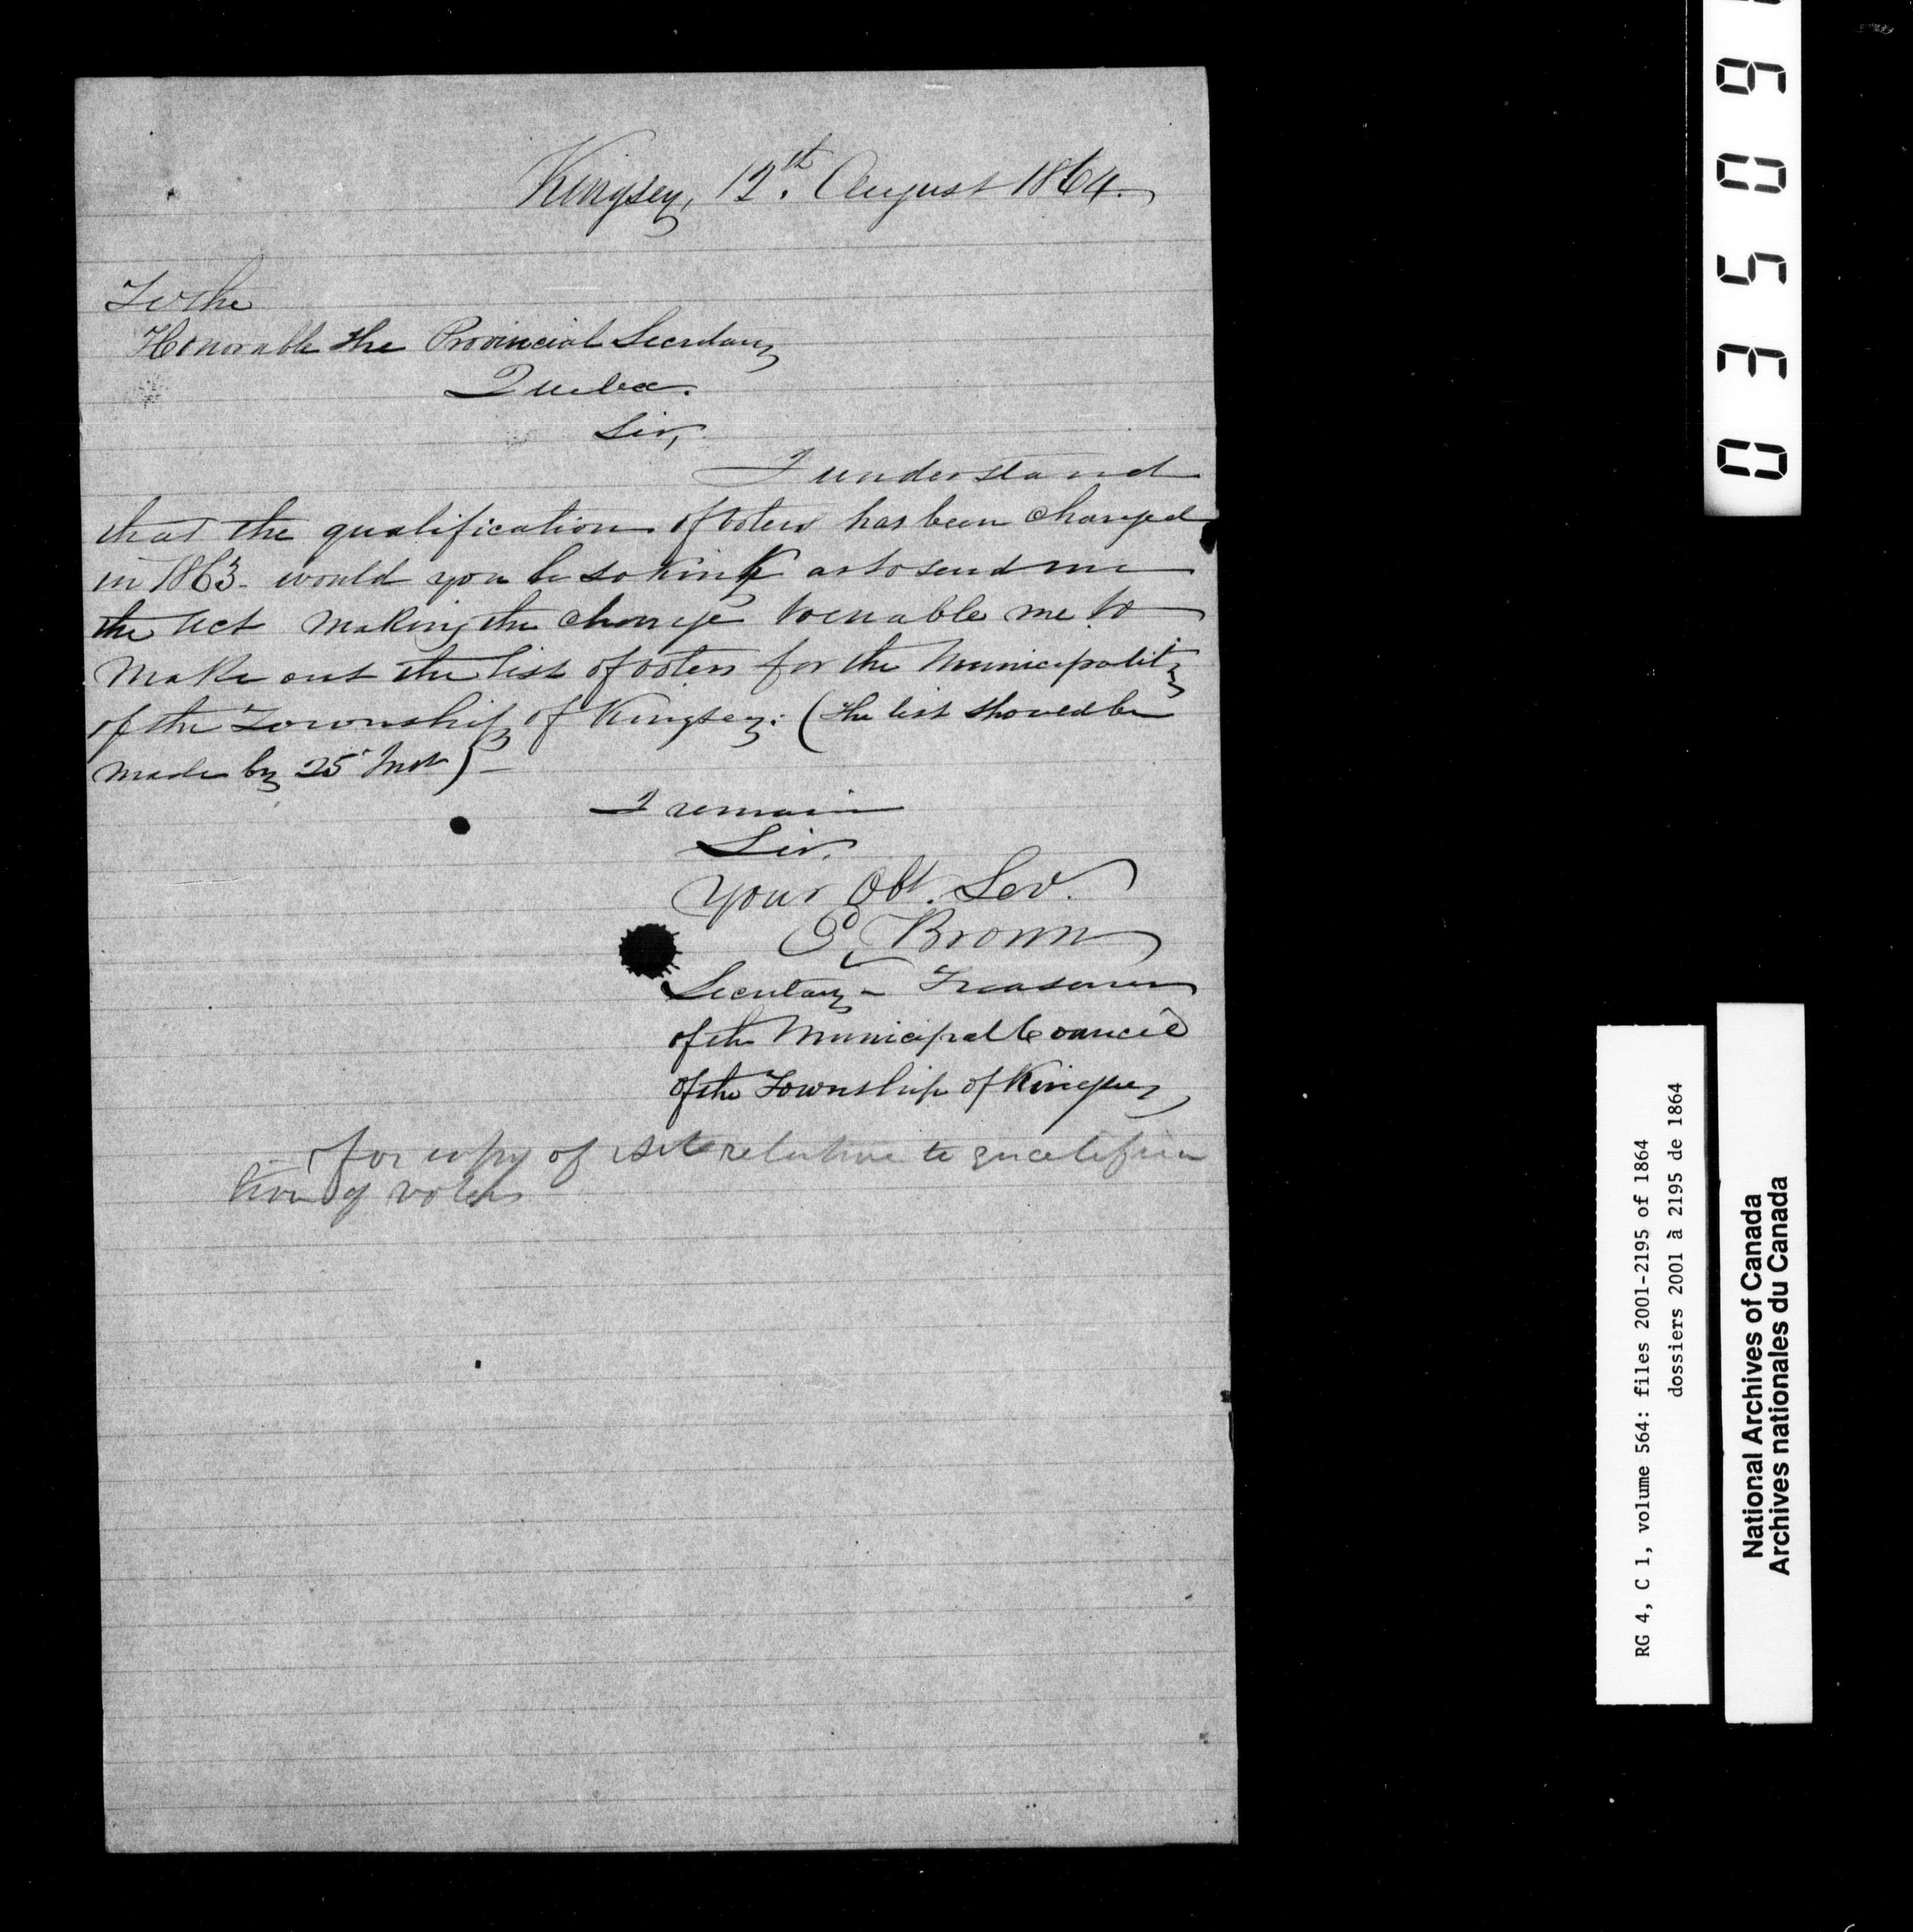 Kingsey, 12th. August 1864.
To the
Honorable the Provincial Secretary
Quebec.
Sir,
I understand
that the qualification of voters has been changed
in 1863 - would you be so kink as to send me
the Act making the change to enable me to
make out the list of voters for the Municipality
of the Township of Kingsey: (The list should be
made by 25 Inst) -
I remain
Sir.
Your Obt. Sev.
Brown
Secretary - Treasurer
of the Municipal Council
of the Township of Kingsey
for copy of Act relative to qualifica
tion of voters
03509
RG 4, C 1, volume 564: files 2001-2195 of 1864
dossiers 2001 à 2195 de 1864
National Archives of Canada
Archives nationales du Canada